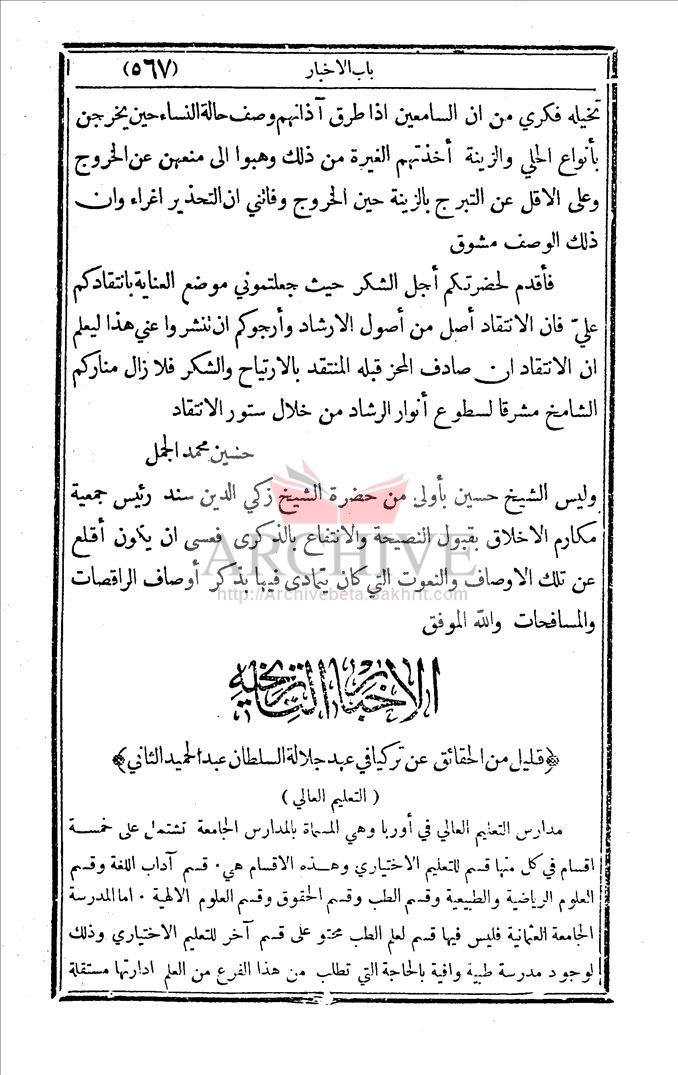 باب الاخبار (٥٦٧)
تخيله فكري من ان السامعين اذا طرق آذانهم وصف حالة النساء حين يخرجن
بأنواع الحلي والزينة أخذتهم الغيرة من ذلك وهبوا الى منعهن عن الخروج
وعلى الاقل عن التبرج بالزينة حين الخروج وفاتني ان التحذير اغراء وان
ذلك الوصف مشوق
فأقدم لحضرتكم أجل الشكر حيث جعلتموني موضع العناية بانتقادكم
عليّ فان الانتقاد أصل من أصول الارشاد وأرجوكم ان تنشروا عني هذا ليعلم
ان الانتقاد ان صادف المحز قبله المنتقد بالارتياح والشكر فلا زال مناركم
الشامخ مشرقا لسطوع أنوار الرشاد من خلال ستور الانتقاد
حسنين محمد الجمل
وليس الشيخ حسين بأولى من حضرة الشيخ زكي الدين سند رئيس جمعية
مكارم الاخلاق بقبول النصيحة والانتفاع بالذكرى فعسى ان يكون أقلع
عن تلك الاوصاف والنعوت التي كان يتمادى فيها بذكر أوصاف الراقصات
والمسافحات والله الموفق
ARCHIVE
http://Archivebeta.Sakhrit.com
الاخبار التاريخية
﴿قليل من الحقائق عن تركيا في عهد جلالة السلطان عبد الحميد الثاني﴾
(التعليم العالي)
مدارس التعليم العالي في أوربا وهي المسماة بالمدارس الجامعة تشتمل على خمسة
اقسام في كل منها قسم للتعليم الاختياري وهذه الاقسام هي. قسم آداب اللغة وقسم
العلوم الرياضية والطبيعية وقسم الطب وقسم الحقوق وقسم العلوم الالهية. اما المدرسة
الجامعة العثمانية فليس فيها قسم لعلم الطب محتو على قسم آخر للتعليم الاختياري وذلك
لوجود مدرسة طبية وافية بالحاجة التي تطلب من هذا الفرع من العلم ادارتها مستقلة